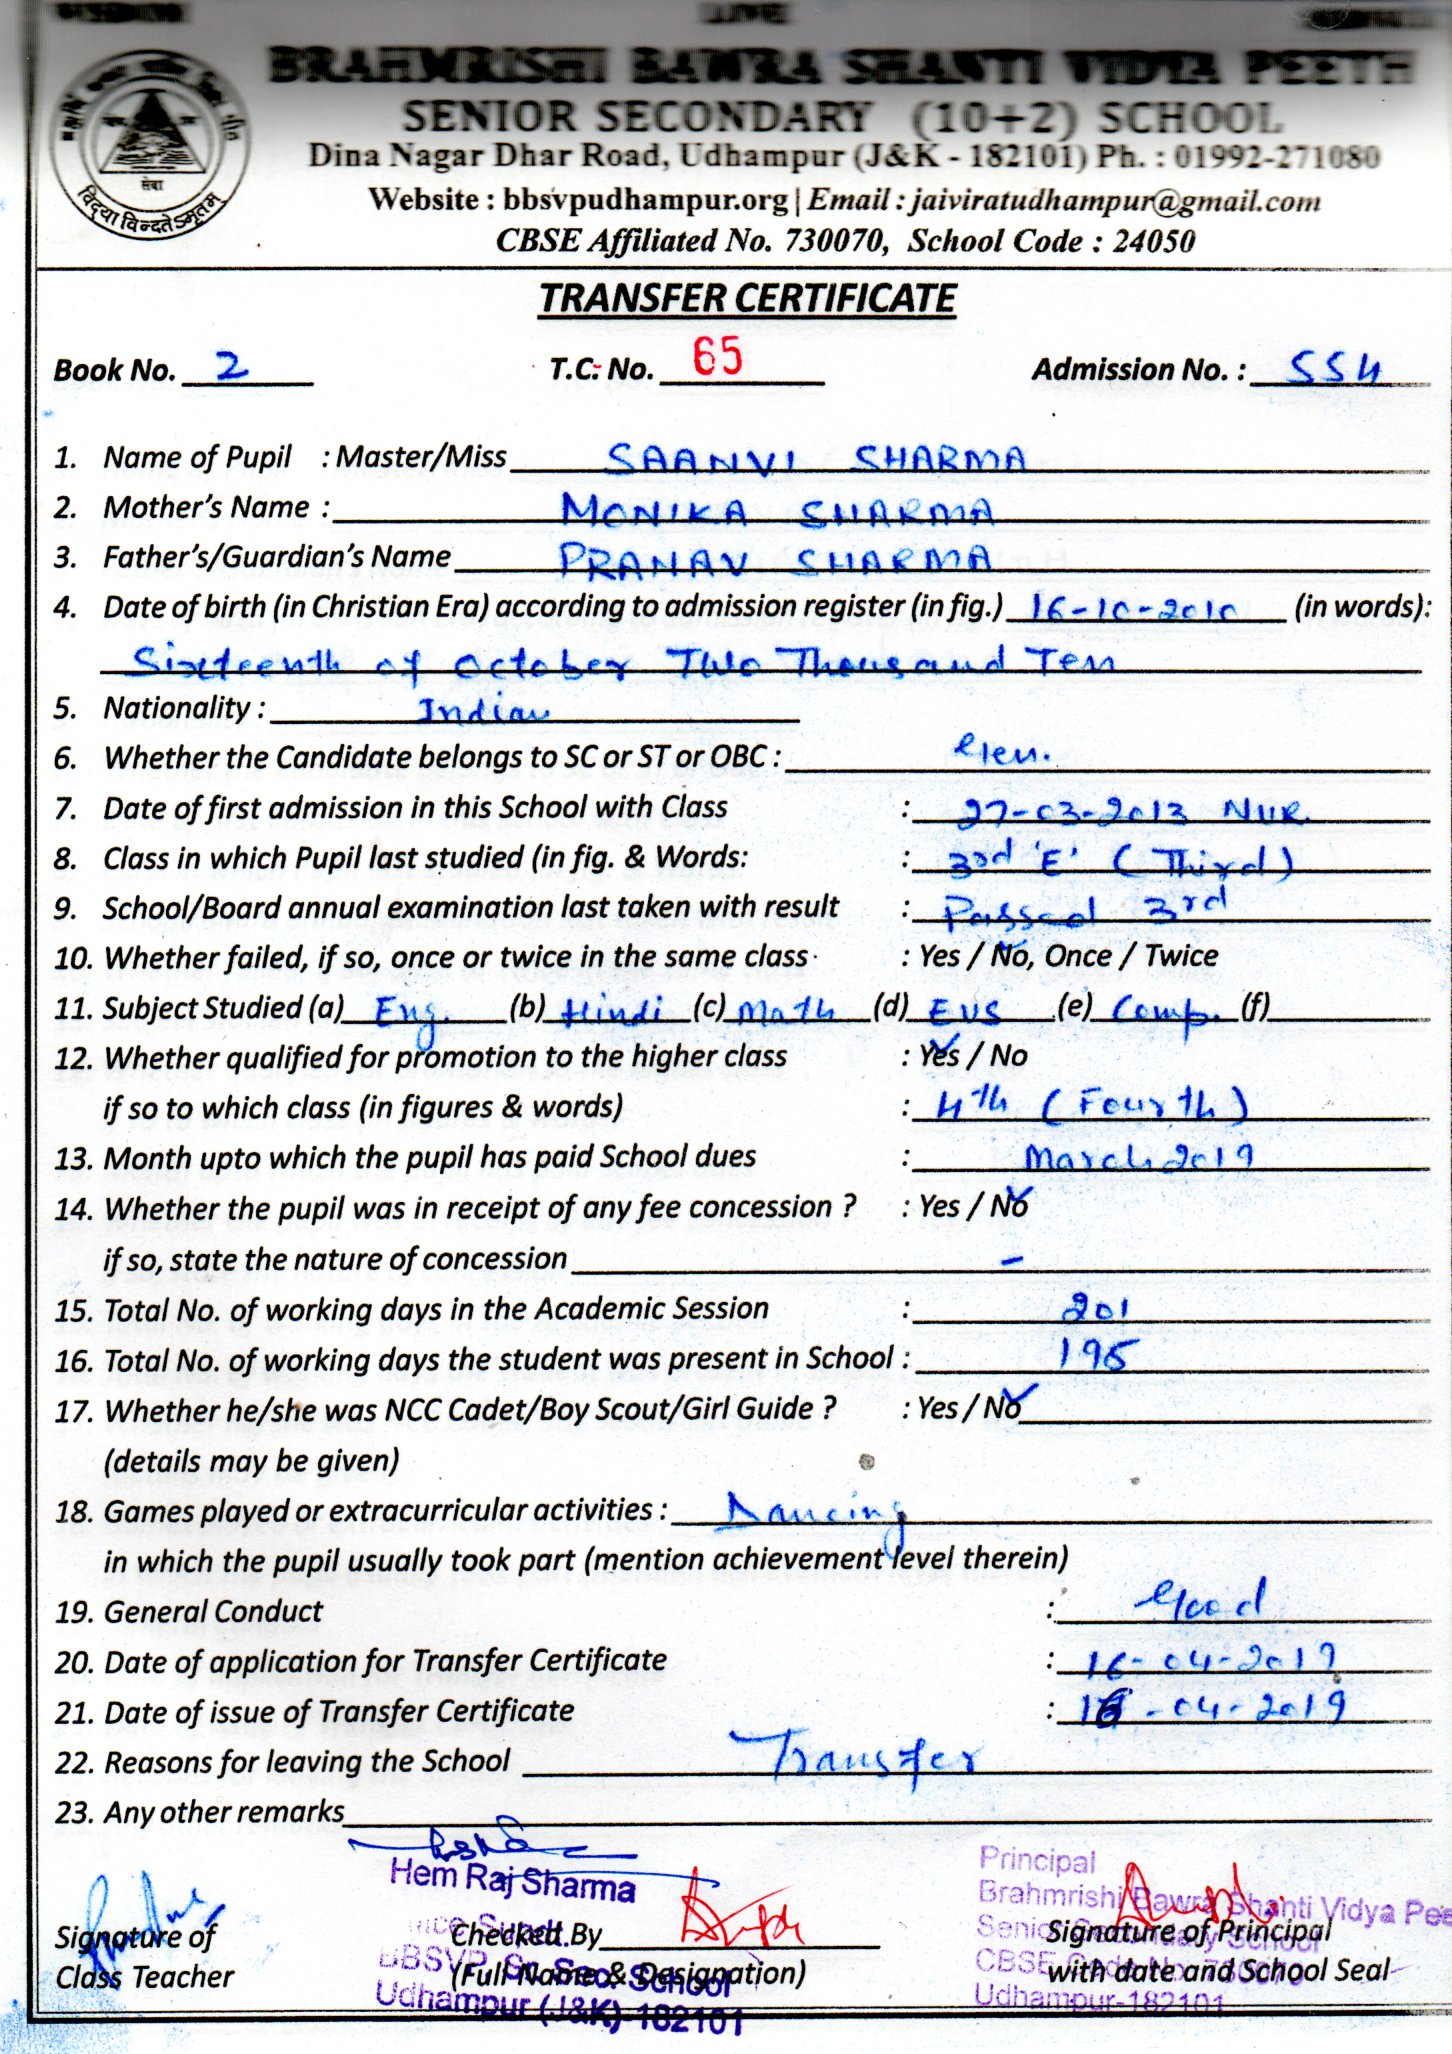 BRAHMRISHI BAWRA SHANTI VIDYA PEETH
SENIOR SECONDARY (10+2) SCHOOL
Dina Nagar Dhar Road, Udhampur (J&K - 182101) Ph. : 01992-271080
Website : bbsvpudhampur.org | Email : jaiviratudhampur@gmail.com
CBSE Affiliated No. 730070, School Code : 24050
सेवा
विद्या विन्दतेऽमृतम्
TRANSFER CERTIFICATE
Book No. 2 T.C. No. 65 Admission No. : 554
1. Name of Pupil : Master/Miss SAANVI SHARMA
2. Mother's Name : MONIKA SHARMA
3. Father's/Guardian's Name PRANAV SHARMA
4. Date of birth (in Christian Era) according to admission register (in fig.) 16-10-2010 (in words):
Sixteenth of October Two Thousand Ten
5. Nationality : Indian
6. Whether the Candidate belongs to SC or ST or OBC : Gen.
7. Date of first admission in this School with Class : 27-03-2013 NUR.
8. Class in which Pupil last studied (in fig. & Words: : 3rd 'E' (Third)
9. School/Board annual examination last taken with result : Passed 3rd
10. Whether failed, if so, once or twice in the same class : Yes / No, Once / Twice
11. Subject Studied (a) Eng. (b) Hindi (c) Math (d) EVS (e) Comp. (f)
12. Whether qualified for promotion to the higher class : Yes / No
if so to which class (in figures & words) : 4th (Fourth)
13. Month upto which the pupil has paid School dues : March 2019
14. Whether the pupil was in receipt of any fee concession ? : Yes / No
if so, state the nature of concession -
15. Total No. of working days in the Academic Session : 201
16. Total No. of working days the student was present in School : 195
17. Whether he/she was NCC Cadet/Boy Scout/Girl Guide ? : Yes / No
(details may be given)
18. Games played or extracurricular activities : Dancing
in which the pupil usually took part (mention achievement level therein)
19. General Conduct : Good
20. Date of application for Transfer Certificate : 16-04-2019
21. Date of issue of Transfer Certificate : 16-04-2019
22. Reasons for leaving the School Transfer
23. Any other remarks
Hem Raj Sharma
Office Supdt.
BBSVP, Sr. Sec. School
Udhampur (J&K) 182101
Principal
Brahmrishi Bawra Shanti Vidya Pee
Senior Secondary School
CBSE Code No. 730070
Udhampur-182101
Signature of Checked By Signature of Principal
Class Teacher (Full Name & Designation) with date and School Seal